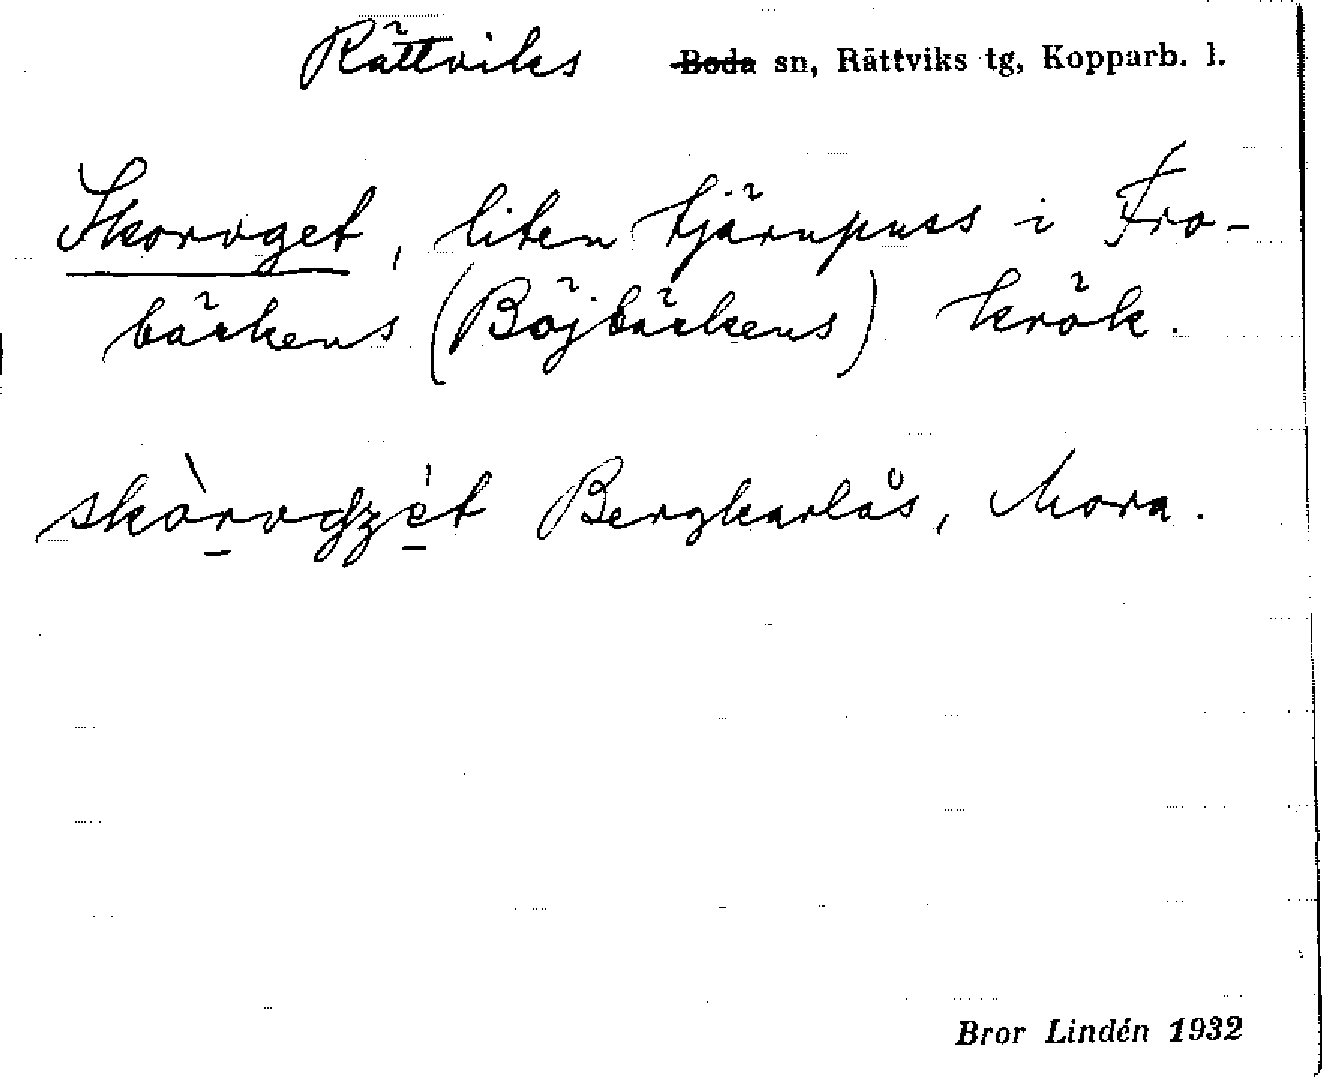 Rättviks Boda sn, Rättviks tg, Kopparb. l.
Skorvget, liten tjärnpuss i Fro-
bäckens (Böjbäckens) krök.
Bergkarlås, Mora.
Bror Lindén 1932